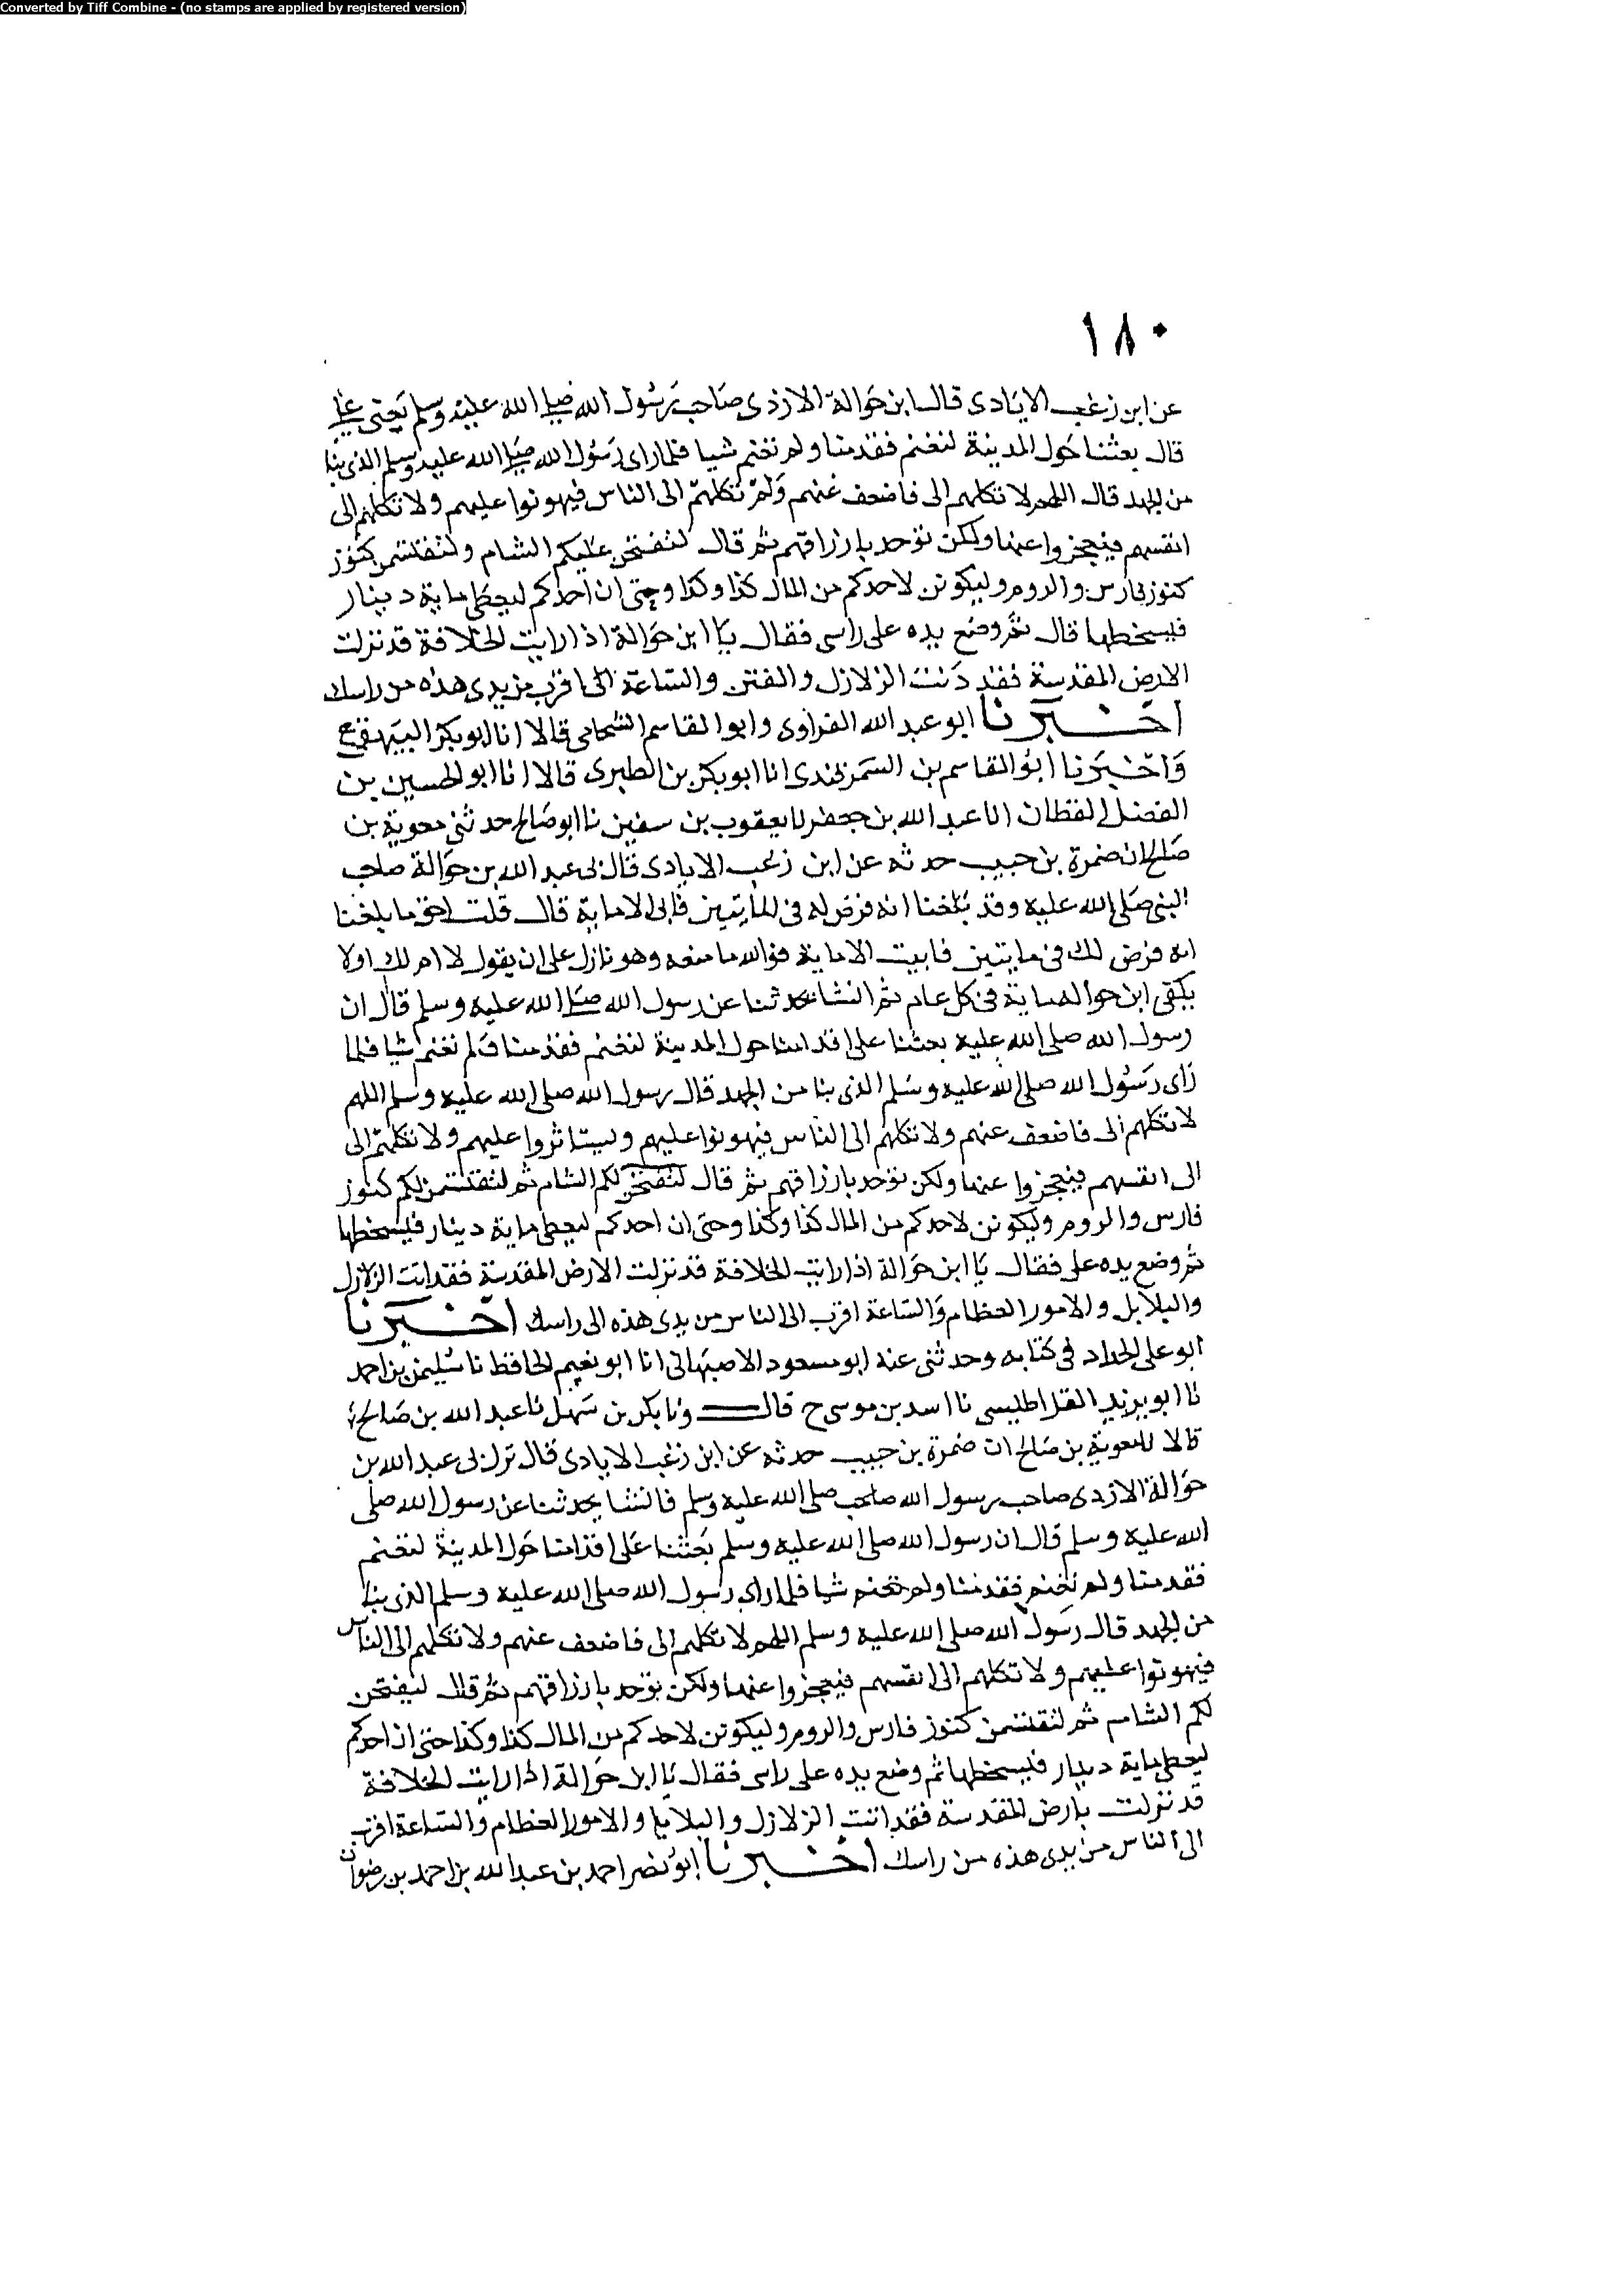 Converted by Tiff Combine - (no stamps are applied by registered version)
١٨٠
عن ابن زغب الايادى قال ابن حوالة الازدى صاحب رسول الله صلى الله عليه وسلم
قال بعثنا حول المدينة لنغنم فقدمنا ولم نغنم شيا فلما راى رسول الله صلى الله عليه وسلم الذى بنا
من الجهد قال اللهم لا تكلهم الى فاضعف عنهم ولا تكلهم الى الناس فيهونوا عليهم ولا تكلهم الى
انفسهم فيعجزوا عنها ولكن توحد بارزاقهم ثم قال لتفتحن عليكم الشام ولتقتسمن كنوز
كنوز فارس والروم وليكونن لاحدكم من المال كذا وكذا وحتى ان احدكم ليعطى ماية دينار
فيسخطها قال ثم وضع يده على راسى فقال يا ابن حوالة اذا رايت الخلافة قد نزلت
الارض المقدسة فقد دنت الزلازل والفتن والساعة اقرب من يدى هذه من راسك
اخبرنا ابو عبد الله الفراوى وابو القاسم الشحامى قالا انا ابو بكر البيهقى ح
واخبرنا ابو القاسم بن السمرقندى انا ابو بكر بن الطبرى قالا انا ابو الحسين بن
الفضل القطان انا عبد الله بن جعفر نا يعقوب بن سفين نا ابو صالح حدثنى معوية بن
صالح ان ضمرة بن حبيب حدثه عن ابن زغب الايادى قال لى عبد الله بن حوالة صاحب
النبى صلى الله عليه وقد بلغنا انه فرض له فى المايتين فابى الا ماية قال قلت احق ما بلغنا
انه فرض لك فى مايتين فابيت الا ماية فوالله ما منعه وهو نازل على ان يقول لا ام لك اولا
يكفى ابن حوالة ماية فى كل عام ثم انشا يحدثنا عن رسول الله صلى الله عليه وسلم قال ان
رسول الله صلى الله عليه بعثنا على اقدامنا حول المدينة لنغنم فقدمنا ولم نغنم شيا فلما
راى رسول الله صلى الله عليه وسلم الذى بنا من الجهد قال رسول الله صلى الله عليه وسلم اللهم
لا تكلهم الى فاضعف عنهم ولا تكلهم الى الناس فيهونوا عليهم ويستاثروا عليهم ولا تكلهم الى
الى انفسهم فيعجزوا عنها ولكن توحد بارزاقهم ثم قال لتفتحن لكم الشام ثم لتقتسمن لكم كنوز
فارس والروم وليكونن لاحدكم من المال كذا وكذا وحتى ان احدكم ليعطى ماية دينار فيسخطها
ثم وضع يده على فقال يا ابن حوالة اذا رايت الخلافة قد نزلت الارض المقدسة فقد اتت الزلازل
والبلابل والامور العظام والساعة اقرب الى الناس من يدى هذه الى راسك اخبرنا
ابو على الحداد فى كتابه وحدثنى عنه ابو مسعود الاصبهانى انا ابو نعيم الحافظ نا سليمن بن احمد
نا ابو يزيد القراطيسى نا اسد بن موسى ح قال ونا بكر بن سهل نا عبد الله بن صالح
قالا نا معوية بن صالح ان ضمرة بن حبيب حدثه عن ابن زغب الايادى قال نزل لى عبد الله بن
حوالة الازدى صاحب رسول الله صاحب صلى الله عليه وسلم فانشا يحدثنا عن رسول الله صلى
الله عليه وسلم قال ان رسول الله صلى الله عليه وسلم بعثنا على اقدامنا حول المدينة لنغنم
فقدمنا ولم نغنم فقدمنا ولم نغنم شيا فلما راى رسول الله صلى الله عليه وسلم الذى بنا
من الجهد قال رسول الله صلى الله عليه وسلم اللهم لا تكلهم الى فاضعف عنهم ولا تكلهم الى الناس
فيهونوا عليهم ولا تكلهم الى انفسهم فيعجزوا عنها ولكن توحد بارزاقهم ثم قال لتفتحن
لكم الشام ثم لتقتسمن كنوز فارس والروم وليكونن لاحدكم من المال كذا وكذا حتى ان احدكم
ليعطى ماية دينار فيسخطها ثم وضع يده على راسى فقال يا ابن حوالة اذا رايت الخلافة
قد نزلت بارض المقدسة فقد اتت الزلازل والبلايا والامور العظام والساعة اقرب
الى الناس من يدى هذه من راسك اخبرنا ابو نصر احمد بن عبد الله بن احمد بن رضوان